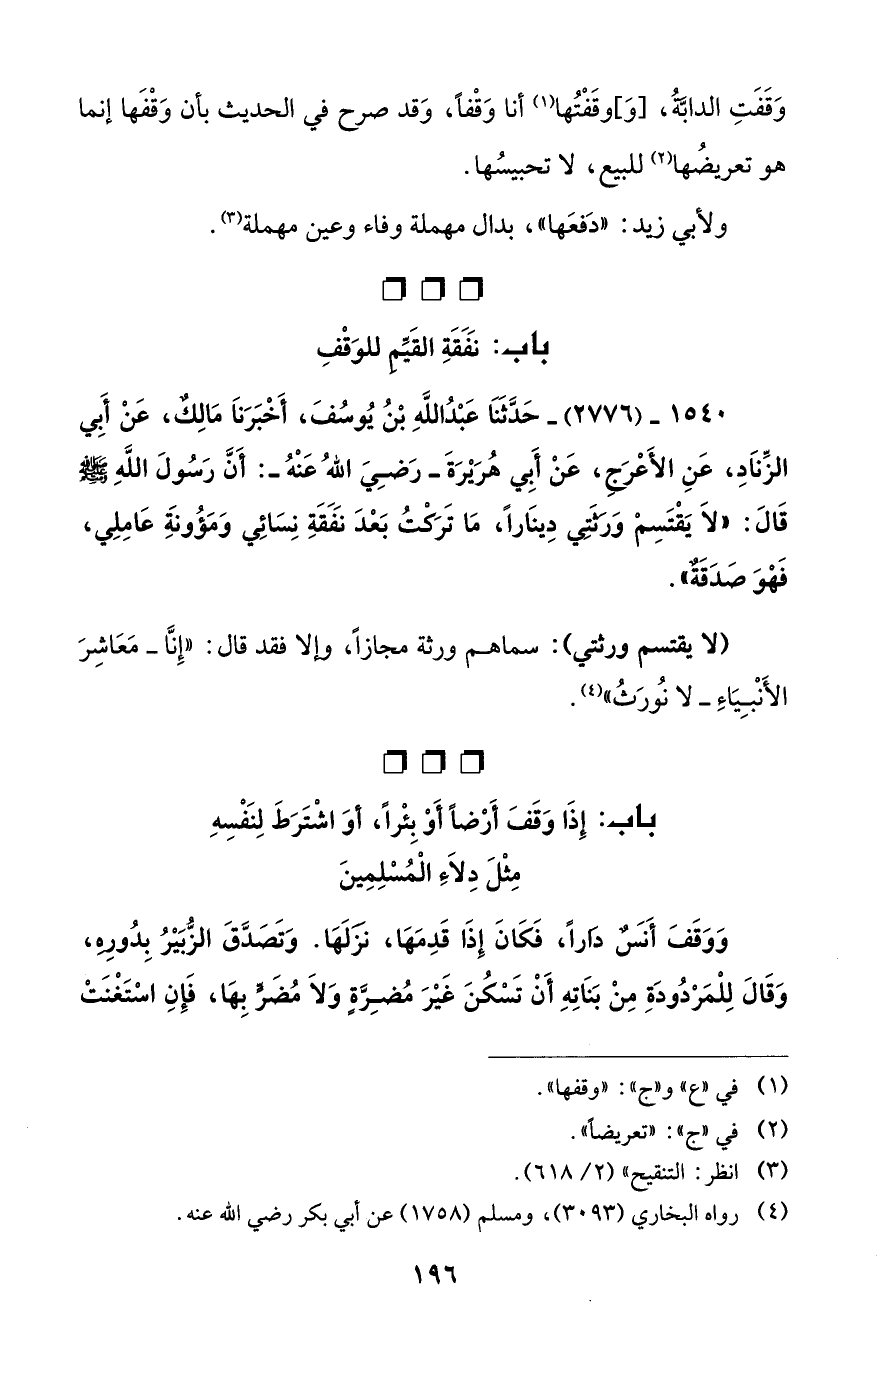 وَقَفَتِ الدابَّةُ، [وَ]وقَفْتُها(١) أنا وَقْفاً، وَقد صرح في الحديث بأن وَقْفَها إنما
هو تعريضُها(٢) للبيع، لا تحبيسُها.
ولأبي زيد: «دَفعَها»، بدال مهملة وفاء وعين مهملة(٣).
❒ ❒ ❒
باب: نَفَقَةِ القَيِّمِ للوَقْفِ
١٥٤٠ ـ (٢٧٧٦) ـ حَدَّثَنَا عَبْدُاللَّهِ بْنُ يُوسُفَ، أَخْبَرَنَا مَالِكٌ، عَنْ أَبِي
الزِّنَادِ، عَنِ الأَعْرَجِ، عَنْ أَبِي هُرَيْرَةَ ـ رَضِيَ اللهُ عَنْهُ ـ: أَنَّ رَسُولَ اللَّهِ ﷺ
قَالَ: «لاَ يَقْتَسِمْ وَرَثَتِي دِينَاراً، مَا تَرَكْتُ بَعْدَ نَفَقَةِ نِسَائِي وَمَؤُونَةِ عَامِلِي،
فَهْوَ صَدَقَةٌ».
(لا يقتسم ورثتي): سماهم ورثة مجازاً، وإلا فقد قال: «إِنَّا ـ مَعَاشِرَ
الأَنْبِيَاءِ ـ لا نُورَثُ»(٤).
❒ ❒ ❒
باب: إِذَا وَقَفَ أَرْضاً أَوْ بِئْراً، أوَ اشْتَرَطَ لِنَفْسِهِ
مِثْلَ دِلاَءِ الْمُسْلِمِينَ
وَوَقَفَ أَنَسٌ دَاراً، فَكَانَ إِذَا قَدِمَهَا، نَزَلَهَا. وَتَصَدَّقَ الزُّبَيْرُ بِدُورِهِ،
وَقَالَ لِلْمَرْدُودَةِ مِنْ بَنَاتِهِ أَنْ تَسْكُنَ غَيْرَ مُضِرَّةٍ وَلاَ مُضَرٍّ بِهَا، فَإِنِ اسْتَغْنَتْ
(١) في «ع» و«ج»: «وقفها».
(٢) في «ج»: «تعريضاً».
(٣) انظر: التنقيح» (٢/ ٦١٨).
(٤) رواه البخاري (٣٠٩٣)، ومسلم (١٧٥٨) عن أبي بكر رضي الله عنه.
١٩٦